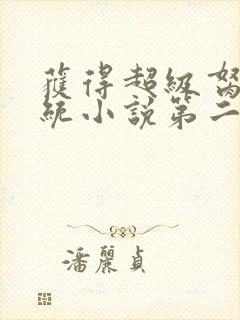 獲得超級
統小說第二
潘麗貞